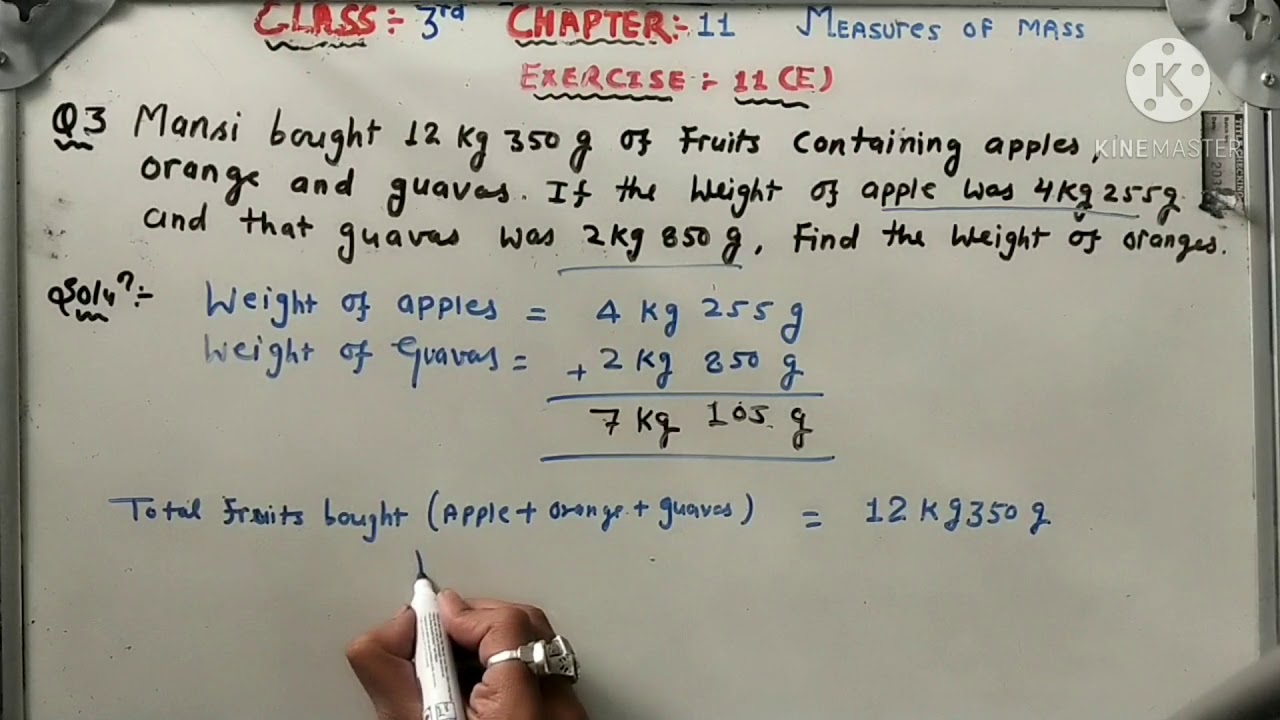 CLASS:- 3rd CHAPTER:- 11 MEASURES OF MASS
EXERCISE:- 11(E)
K
KINEMASTER
Q3 Mansi bought 12 Kg 350 g of Fruits containing apples,
orange and guavas. If the Weight of apple was 4Kg 255g
and that guavas was 2Kg 850 g, Find the Weight of oranges.
Soluⁿ:- Weight of apples = 4 Kg 255 g
Weight of Guavas = + 2 Kg 850 g
7 Kg 105 g
Total Fruits bought (Apple + orange + guavas) = 12 Kg 350 g